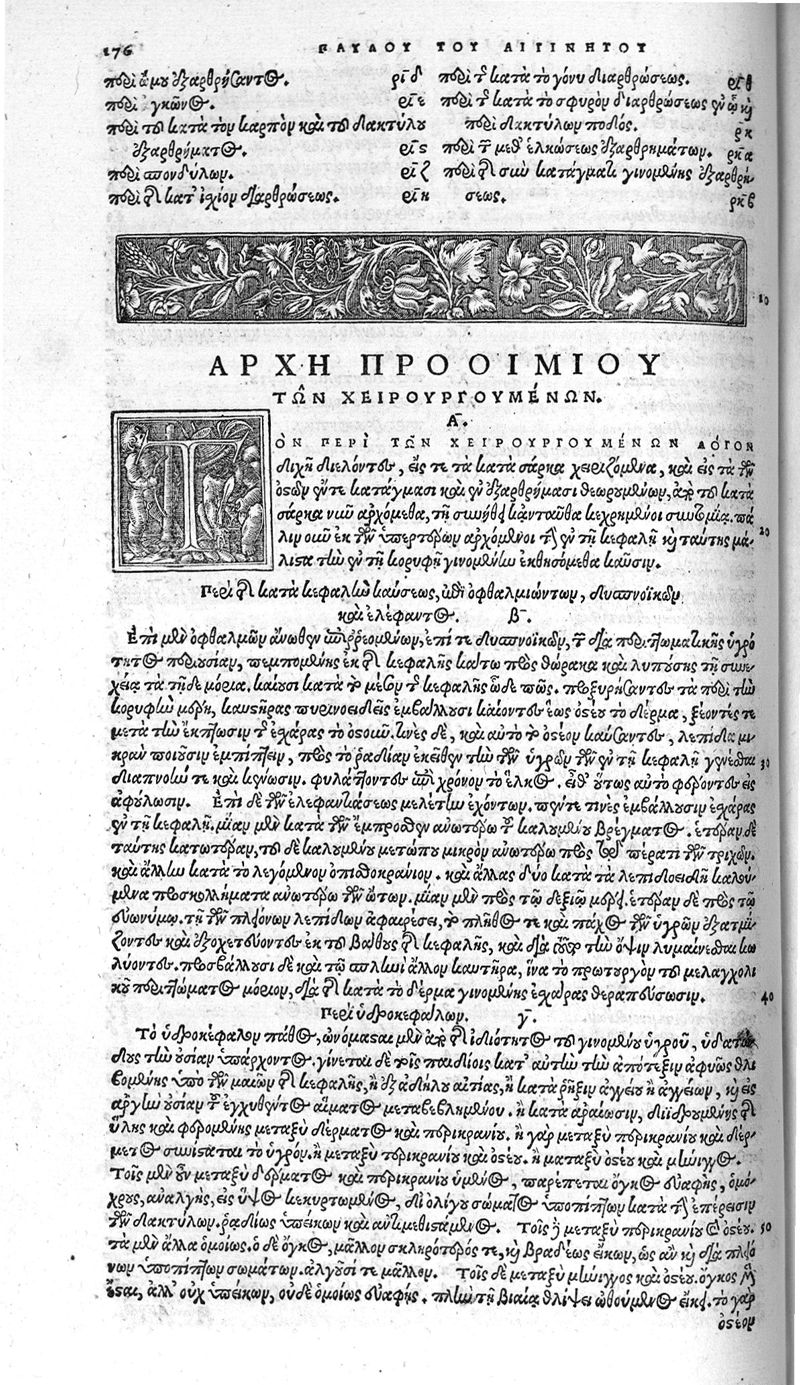 176 ΠΑΥΛΟΥ ΤΟΥ ΑΙΓΙΝΗΤΟΥ
περὶ ὤμου ἐξαρθρήσαντος. ριδ
περὶ ἀγκῶνος. ριε
περὶ τοῦ κατὰ τὸν καρπὸν καὶ τοῦ δακτύλου
ἐξαρθρήματος. ριϛ
περὶ σπονδύλων. ριζ
περὶ τῆς κατ' ἰσχίον διαρθρώσεως. ριη
περὶ τῆς κατὰ τὸ γόνυ διαρθρώσεως. ριθ
περὶ τῆς κατὰ τὸ σφυρὸν διαρθρώσεως ἐν ᾧ καὶ
περὶ δακτύλων ποδός. ρκ
περὶ τῶν μεθ' ἑλκώσεως ἐξαρθρημάτων. ρκα
περὶ τῆς σὺν κατάγματι γινομένης ἐξαρθρή-
σεως. ρκβ
10
ΑΡΧΗ ΠΡΟΟΙΜΙΟΥ
ΤΩ͂Ν ΧΕΙΡΟΥΡΓΟΥΜΈΝΩΝ.
Α.
ΤΟΝ ΠΕΡῚ ΤΩ͂Ν ΧΕΙΡΟΥΡΓΟΥΜΈΝΩΝ ΛΌΓΟΝ
διχῆ διελόντες, εἴς τε τὰ κατὰ σάρκα χειριζόμενα, καὶ εἰς τὰ τῶν
ὀστῶν ἔν τε κατάγμασι καὶ ἐν ἐξαρθρήμασι θεωρουμένων, ἀπὸ τοῦ κατὰ
σάρκα νῦν ἀρχόμεθα, τῇ συνήθει κἀνταῦθα κεχρημένοι συντομίᾳ. πά-
λιν οὖν ἐκ τῶν ὑπερτέρων ἀρχόμενοι τῶν ἐν τῇ κεφαλῇ καὶ ταύτης μά- 20
λιστα τὴν ἐν τῇ κορυφῇ γινομένην ἐκθησόμεθα καῦσιν.
Περὶ τῆς κατὰ κεφαλὴν καύσεως, ἐπὶ ὀφθαλμιώντων, δυσπνοϊκῶν
καὶ ἐλέφαντος. β.
Ἐπὶ μὲν ὀφθαλμῶν ἄνωθεν ἐπιρρεομένων, ἐπί τε δυσπνοϊκῶν, τῶν διὰ περιττωματικῆς ὑγρό
τητος περιουσίαν, πεμπομένης ἐκ τῆς κεφαλῆς κάτω πρὸς θώρακα καὶ λυπούσης τῇ συνε-
χείᾳ τὰ τῇδε μόρια. καίουσι κατὰ τὸ μέσον τῆς κεφαλῆς ὧδε πως. προξυρήσαντες τὰ περὶ τὴν
κορυφὴν μέρη, καυτῆρας πυρινοειδεῖς ἐμβάλλουσι καίοντες ἕως ὀστέου τὸ δέρμα, ξέοντές τε
μετὰ τὴν ἔκπτωσιν τῆς ἐσχάρας τὸ ὀστοῦν. τινὲς δὲ, καὶ αὐτὸ τὸ ὀστέον καύσαντες, λεπίδα μι-
κρὰν ποιοῦσιν ἐμπίπτειν, πρὸς τὸ ῥᾳδίαν ἐκεῖθεν τὴν τῶν ὑγρῶν τῶν ἐν τῇ κεφαλῇ γενέσθαι 30
διαπνοήν τε καὶ κένωσιν. φυλάττοντες ἐπὶ χρόνον τὸ ἕλκος. εἶθ' οὕτως αὐτὸ φέροντες εἰς
ἀφούλωσιν. Ἐπὶ δὲ τῶν ἐλεφαντιάσεως μελέτην ἐχόντων. πέντε τινὲς ἐμβάλλουσιν ἐσχάρας
ἐν τῇ κεφαλῇ. μίαν μὲν κατὰ τῶν ἔμπροσθεν ἀνωτέρω τοῦ καλουμένου βρέγματος. ἑτέραν δὲ
ταύτης κατωτέραν, τοῦ δὲ καλουμένου μετώπου μικρὸν ἀνωτέρω πρὸς τῷ πέρατι τῶν τριχῶν.
καὶ ἄλλην κατὰ τὸ λεγόμενον ὀπισθοκράνιον. καὶ ἄλλας δύο κατὰ τὰ λεπιδοειδῆ καλού-
μενα προσκολλήματα ἀνωτέρω τῶν ὤτων. μίαν μὲν πρὸς τῷ δεξιῷ μέρει. ἑτέραν δὲ πρὸς τῷ
εὐωνύμῳ. τῇ τῶν πλειόνων λεπίδων ἀφαιρέσει, τὸ πλῆθος τε καὶ πάχος τῶν ὑγρῶν ἐξατμί-
ζοντες καὶ ἐξοχετεύοντες ἐκ τοῦ βάθους τῆς κεφαλῆς, καὶ διὰ τοῦτο τὴν ὄψιν λυμαίνεσθαι κω
λύοντες. προσβάλλουσι δὲ καὶ τῷ σπληνὶ ἄλλον καυτῆρα, ἵνα τὸ πρωτουργὸν τοῦ μελαγχολι
κοῦ περιττώματος μόριον, διὰ τῆς κατὰ τὸ δέρμα γινομένης ἐσχάρας θεραπεύσωσιν. 40
Περὶ ὑδροκεφάλων. γ.
Τὸ ὑδροκέφαλον πάθος, ὠνόμασται μὲν ἀπὸ τῆς ἰδιότητος τοῦ γινομένου ὑγροῦ, ὑδατώ-
δους τὴν οὐσίαν ὑπάρχοντος. γίνεται δὲ τοῖς παιδίοις κατ' αὐτὴν τὴν ἀπότεξιν ἀφυῶς θλι
βομένης ὑπὸ τῶν μαιῶν τῆς κεφαλῆς, ἢ ἐξ ἀδήλου αἰτίας, ἢ κατὰ ῥῆξιν ἀγγείου ἢ ἀγγείων, καὶ εἰς
ἀργὴν οὐσίαν τοῦ ἐγχυθέντος αἵματος μεταβεβλημένου. ἢ κατὰ ἀραίωσιν, διϊδρουμένης τῆς
ὕλης καὶ φερομένης μεταξὺ δέρματος καὶ περικρανίου. ἢ γὰρ μεταξὺ περικρανίου καὶ δέρ-
ματος συνίσταται τὸ ὑγρόν. ἢ μεταξὺ περικρανίου καὶ ὀστέου. ἢ ματαξὺ ὀστέου καὶ μήνιγγος.
Τοῖς μὲν οὖν μεταξὺ δέρματος καὶ περικρανίου ὑμένος, παρέπεται ὄγκος εὐαφὴς, ὁμό-
χρους, ἀναλγὴς, εἰς ὕψος κεκυρτωμένος, δι' ὀλίγου σώματος ὑποπίπτων κατὰ τὴν ἐπέρεισιν
τῶν δακτύλων. ῥᾳδίως ὑπείκων καὶ ἀντιμεθιστάμενος. Τοῖς δὲ μεταξὺ περικρανίου καὶ ὀστέου. 50
τὰ μὲν ἄλλα ὁμοίως. ὁ δὲ ὄγκος, μᾶλλον σκληρότερός τε, καὶ βραδέως εἴκων, ὡς ἂν καὶ διὰ πλειό
νων ὑποπίπτων σωμάτων. ἀλγοῦσί τε μᾶλλον. Τοῖς δὲ μεταξὺ μήνιγγος καὶ ὀστέου. ὄγκος μέν
ἔσται, ἀλλ' οὐχ ὑπείκων, οὐδὲ ὁμοίως εὐαφής. πλὴν τῇ βιαίᾳ θλίψει ὠθούμενος εἴκει. τὸ γὰρ
ὀστέον